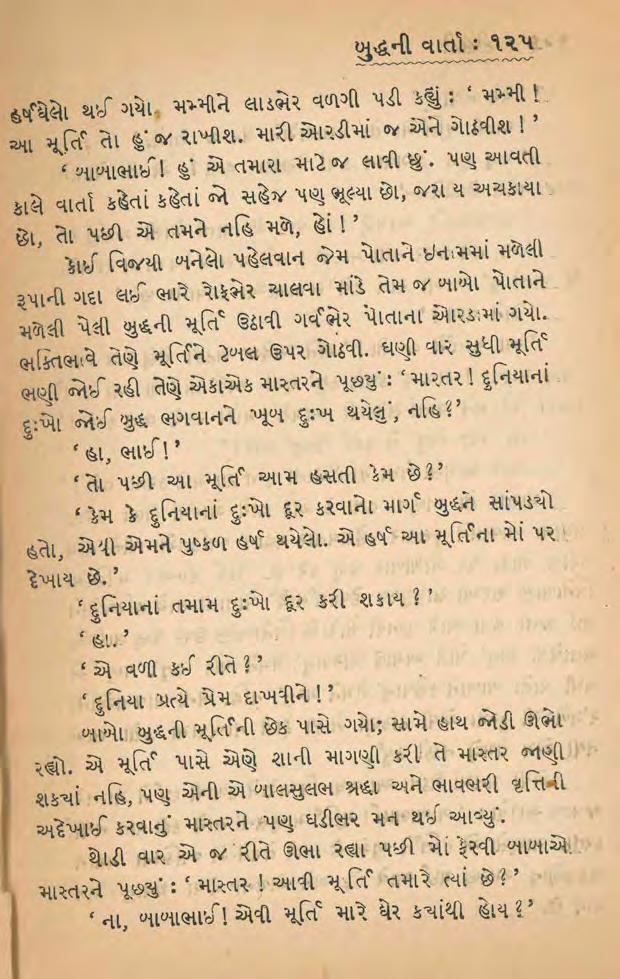 બુદ્ધની વાર્તા : ૧૨૫
હર્ષઘેલો થઈ ગયો. મમ્મીને લાડભેર વળગી પડી કહ્યું : ‘ મમ્મી !
આ મૂર્તિ તો હું જ રાખીશ. મારી ઓરડીમાં જ એને ગોઠવીશ ! ’
‘ બાબાભાઈ ! હું એ તમારા માટે જ લાવી છું. પણ આવતી
કાલે વાર્તા કહેતાં કહેતાં જો સહેજ પણ ભૂલ્યા છો, જરા ય અચકાયા
છો, તો પછી એ તમને નહિ મળે, હોં ! ’
કોઈ વિજયી બનેલો પહેલવાન જેમ પોતાને ઇનામમાં મળેલી
રૂપાની ગદા લઈ ભારે રોફભેર ચાલવા માંડે તેમ જ બાબો પોતાને
મળેલી પેલી બુદ્ધની મૂર્તિ ઉઠાવી ગર્વભેર પોતાના ઓરડામાં ગયો.
ભક્તિભાવે તેણે મૂર્તિને ટેબલ ઉપર ગોઠવી. ઘણી વાર સુધી મૂર્તિ
ભણી જોઈ રહી તેણે એકાએક માસ્તરને પૂછ્યું : ‘ માસ્તર ! દુનિયાનાં
દુઃખો જોઈ બુદ્ધ ભગવાનને ખૂબ દુઃખ થયેલું, નહિ ? ’
‘ હા, ભાઈ ! ’
‘ તો પછી આ મૂર્તિ આમ હસતી કેમ છે ? ’
‘ કેમ કે દુનિયાનાં દુઃખો દૂર કરવાનો માર્ગ બુદ્ધને સાંપડ્યો
હતો, એથી એમને પુષ્કળ હર્ષ થયેલો. એ હર્ષ આ મૂર્તિના મોં પર
દેખાય છે. ’
‘ દુનિયાનાં તમામ દુઃખો દૂર કરી શકાય ? ’
‘ હા. ’
‘ એ વળી કઈ રીતે ? ’
‘ દુનિયા પ્રત્યે પ્રેમ દાખવીને ! ’
બાબો બુદ્ધની મૂર્તિની છેક પાસે ગયો; સામે હાથ જોડી ઊભો
રહ્યો. એ મૂર્તિ પાસે એણે શાની માગણી કરી તે માસ્તર જાણી
શક્યાં નહિ, પણ એની એ બાલસુલભ શ્રદ્ધા અને ભાવભરી વૃત્તિની
અદેખાઈ કરવાનું માસ્તરને પણ ઘડીભર મન થઈ આવ્યું.
થોડી વાર એ જ રીતે ઊભા રહ્યા પછી મોં ફેરવી બાબાએ
માસ્તરને પૂછ્યું : ‘ માસ્તર ! આવી મૂર્તિ તમારે ત્યાં છે ? ’
‘ ના, બાબાભાઈ ! એવી મૂર્તિ મારે ઘેર ક્યાંથી હોય ? ’